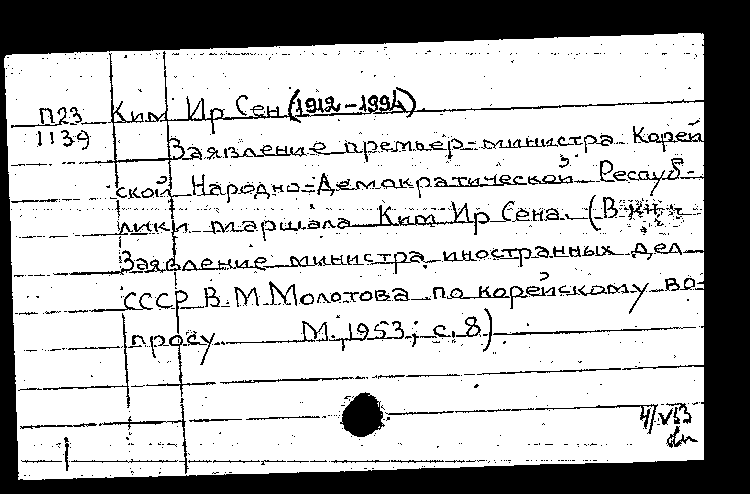 П23 Ким Ир Сен (1912-1994).
1139
Заявление премьер-министра Корей
ской Народно-Демократической Респуб-
лики маршала Ким Ир Сена. (В кн.:
Заявление министра иностранных дел
СССР В.М.Молотова по корейскому во-
просу М., 1953, с. 8)
4/V53